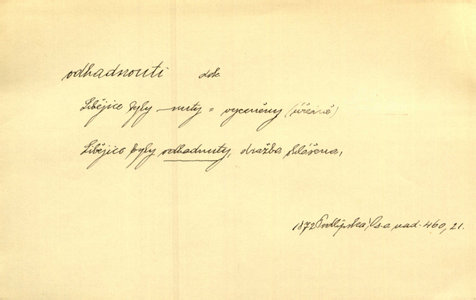 odhadnouti dok.
Libějice byly -nuty = vyceněny (úředně)
Libějice byly odhadnuty, dražba hlášena,
1872 Podlipská Osa nad. 460, 21.